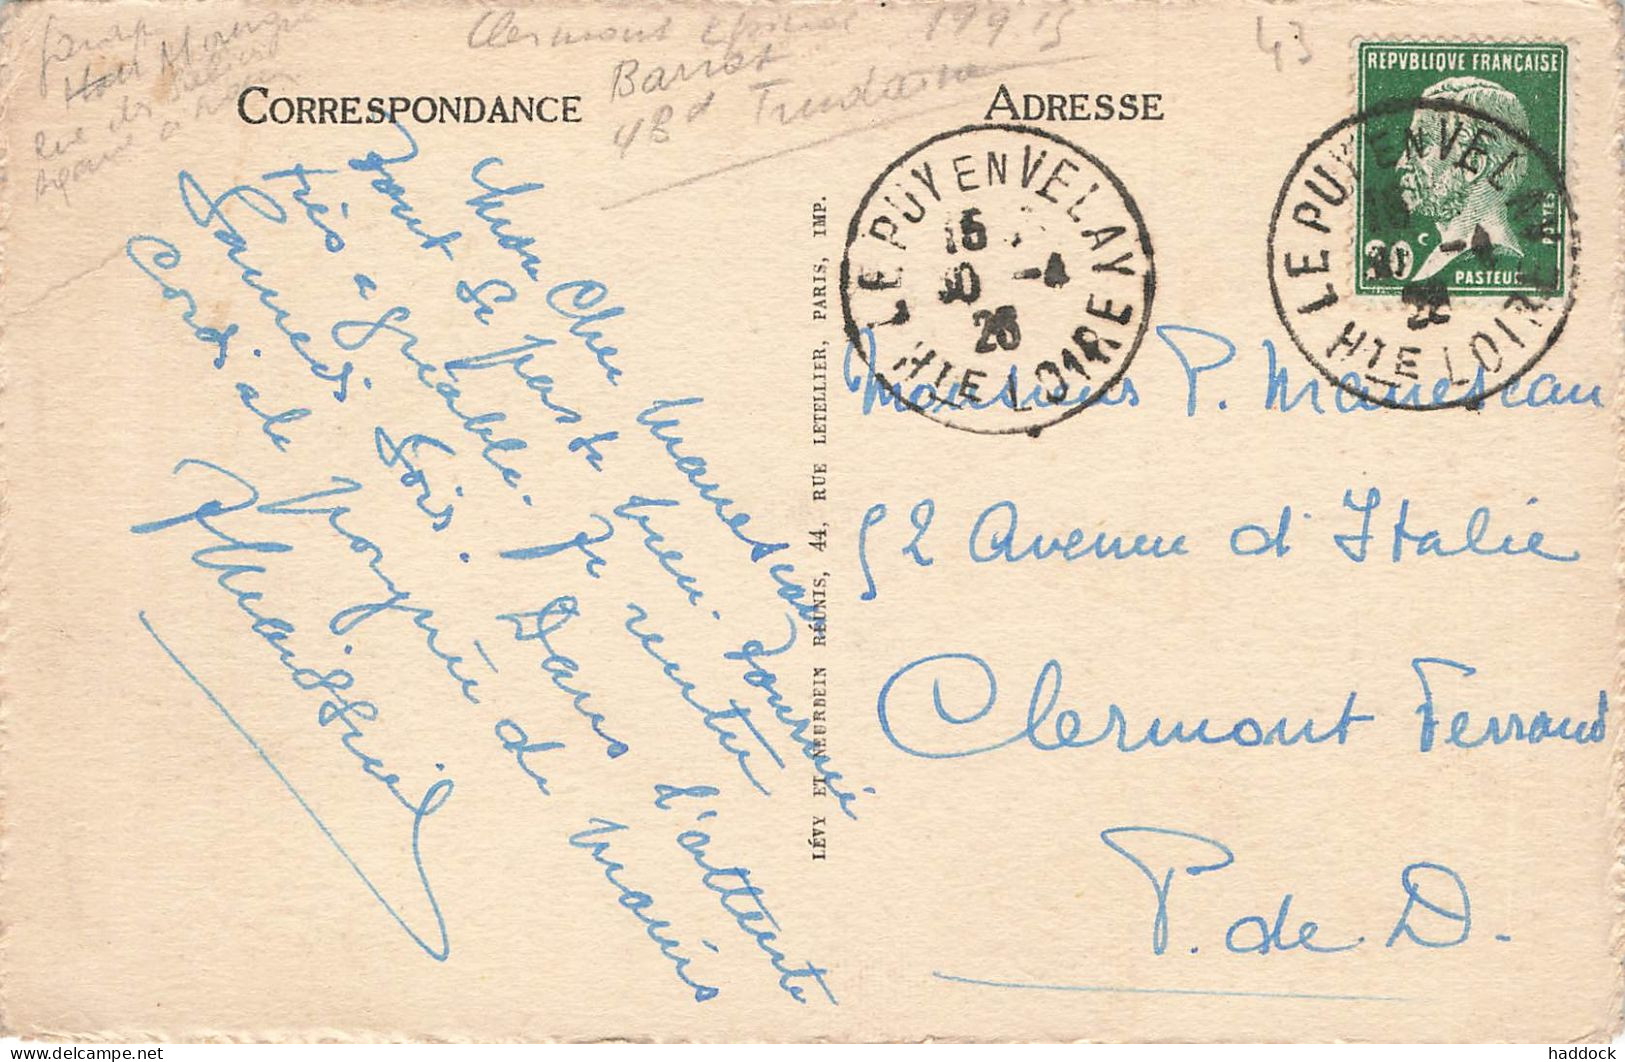 Clermont
Barrat
48d Trudaine
43
CORRESPONDANCE
ADRESSE
REPVBLIQUE FRANÇAISE
POSTES
20c
PASTEUR
LE PUY EN VELAY
15
-4
26
HTE LOIRE
LE PUY EN VELAY
-4
HTE LOIRE
Mon Cher Manesseau
Tout se passe bien. Tournée
très agréable. Je rentre
Samedi soir. Dans l'attente
Cordiale poignée de mains
LÉVY ET NEURDEIN RÉUNIS, 44, RUE LETELLIER, PARIS, IMP.
Monsieur P. Manesseau
52 Avenue d'Italie
Clermont Ferrand
P. de D.
haddock